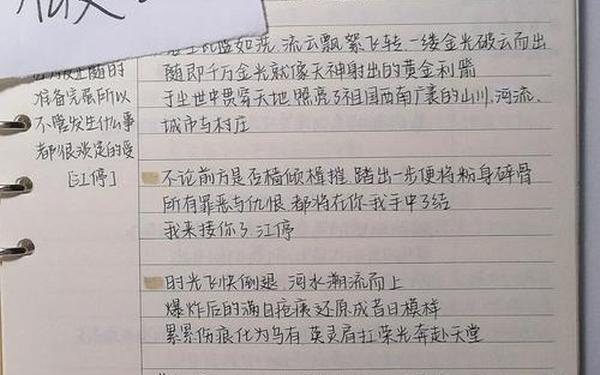 随时
准备完蛋所以
不管发生什么事
都很淡定的爱
[江停]
瓦蓝如洗 流云飘絮飞转 一缕金光破云而出
随即千万金光就像天神射出的黄金利箭
于尘世中贯穿天地 照亮了祖国西南广袤的山川、河流、
城市与村庄
不论前方是否樯倾楫摧 踏出一步便将粉身碎骨
所有罪恶与仇恨 都将在你我手中了结
我来接你了 江停
时光飞快倒退 河水溯流而上
爆炸后的满目疮痍还原成昔日模样
累累伤痕化为乌有 英灵肩扛荣光奔赴天堂